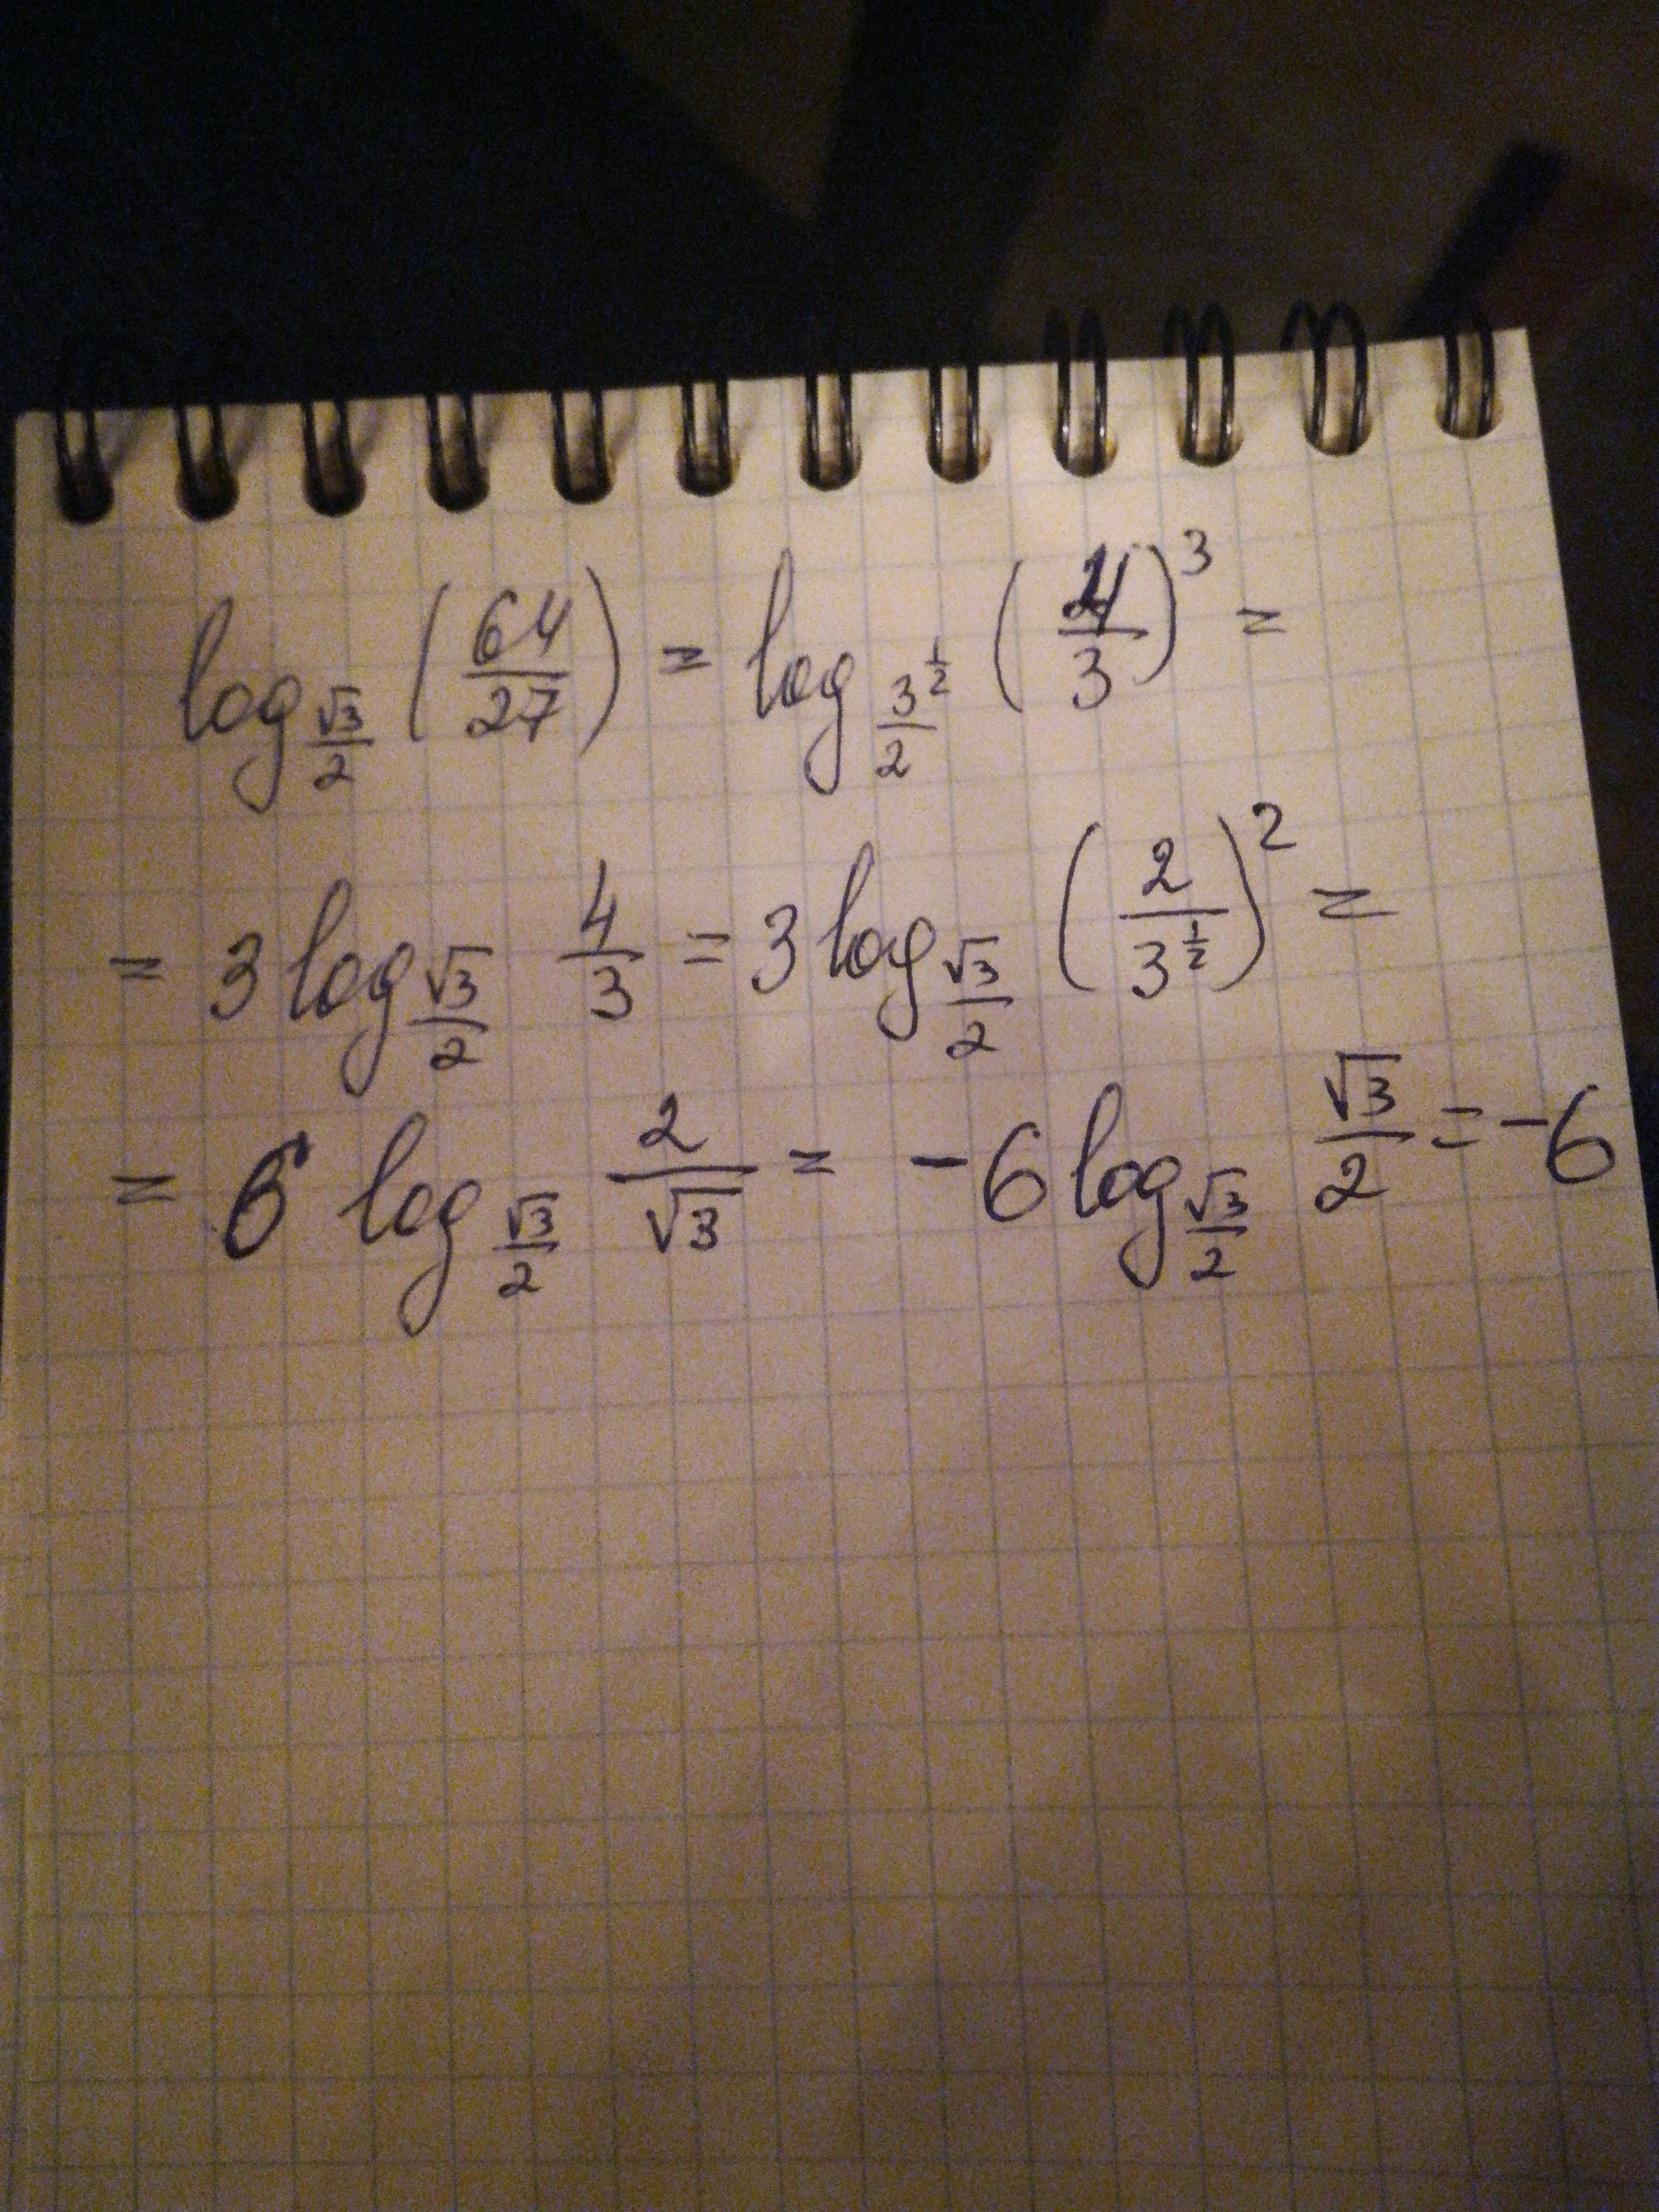 log_{\frac{√3}{2}} (\frac{64}{27}) = log_{\frac{3^{\frac{1}{2}}}{2}} (\frac{4}{3})^3 =
= 3 log_{\frac{√3}{2}} \frac{4}{3} = 3 log_{\frac{√3}{2}} (\frac{2}{3^{\frac{1}{2}}})^2 =
= 6 log_{\frac{√3}{2}} \frac{2}{√3} = -6 log_{\frac{√3}{2}} \frac{√3}{2} = -6